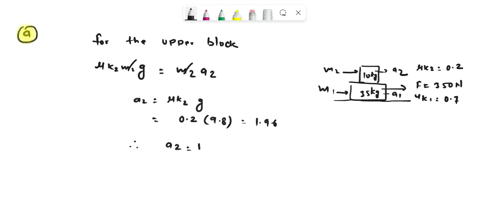 a
for the upper block
μk2 m2 g = m2 a2
a2 = μk2 g
= 0.2 (9.8) = 1.96
∴ a2 = 1
m2 → 10kg → a2 μk2 = 0.2
F = 350N
m1 → 35kg → a1
μk1 = 0.7